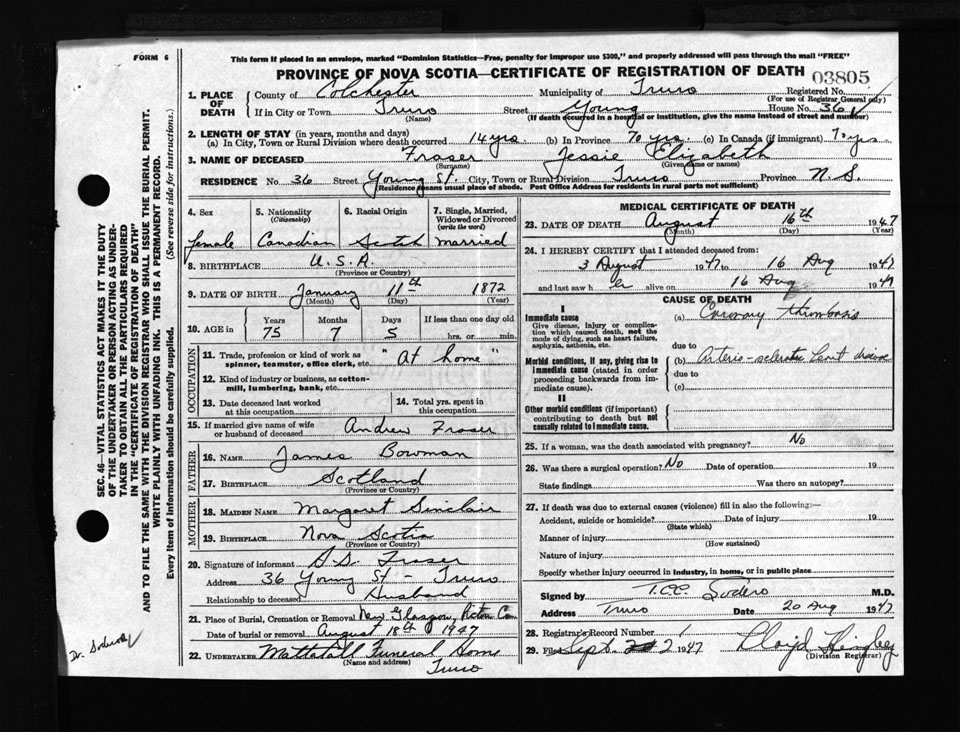 FORM 6
This form if placed in an envelope, marked "Dominion Statistics—Free, penalty for improper use $300," and properly addressed will pass through the mail "FREE"
PROVINCE OF NOVA SCOTIA—CERTIFICATE OF REGISTRATION OF DEATH 03805
1. PLACE OF DEATH
County of Colchester Municipality of Truro Registered No.
(For use of Registrar General only)
If in City or Town Truro Street Young House No. 36
(Name) (If death occurred in a hospital or institution, give the name instead of street and number)
2. LENGTH OF STAY (in years, months and days)
(a) In City, Town or Rural Division where death occurred 14 yrs. (b) In Province 70 yrs. (c) In Canada (if immigrant) 70 yrs.
3. NAME OF DECEASED Fraser Jessie Elizabeth
(Surname) (Given name or names)
RESIDENCE No. 36 Street Young St. City, Town or Rural Division Truro Province N. S.
(Residence means usual place of abode. Post Office Address for residents in rural parts not sufficient)
4. Sex female
5. Nationality (Citizenship) Canadian
6. Racial Origin Scotch
7. Single, Married, Widowed or Divorced (write the word) married
8. BIRTHPLACE U.S.A.
(Province or Country)
9. DATE OF BIRTH January 11th 1872
(Month) (Day) (Year)
10. AGE in Years 75 Months 7 Days 5 If less than one day old hrs. or min.
OCCUPATION
11. Trade, profession or kind of work as spinner, teamster, office clerk, etc. "At home"
12. Kind of industry or business, as cotton-mill, lumbering, bank, etc.
13. Date deceased last worked at this occupation
14. Total yrs. spent in this occupation
15. If married give name of wife or husband of deceased Andrew Fraser
FATHER
16. NAME James Bowman
17. BIRTHPLACE Scotland
(Province or Country)
MOTHER
18. MAIDEN NAME Margaret Sinclair
19. BIRTHPLACE Nova Scotia
(Province or Country)
20. Signature of informant A S. Fraser
Address 36 Young St - Truro
Relationship to deceased Husband
21. Place of Burial, Cremation or Removal New Glasgow, Pictou Co
Date of burial or removal August 18th 1947
22. UNDERTAKER Mattatall Funeral Home
(Name and address) Truro
MEDICAL CERTIFICATE OF DEATH
23. DATE OF DEATH August 16th 1947
(Month) (Day) (Year)
24. I HEREBY CERTIFY that I attended deceased from:
3 August 1947 to 16 Aug 1947
and last saw her alive on 16 Aug 1947
CAUSE OF DEATH
I
Immediate cause
Give disease, injury or complication which caused death, not the mode of dying, such as heart failure, asphyxia, asthenia, etc.
(a) Coronary thrombosis
due to
Morbid conditions, if any, giving rise to immediate cause (stated in order proceeding backwards from immediate cause).
(b) Arterio-sclerotic heart disease
due to
(c)
II
Other morbid conditions (if important) contributing to death but not causally related to immediate cause.
25. If a woman, was the death associated with pregnancy? No
26. Was there a surgical operation? No Date of operation 19
State findings Was there an autopsy?
27. If death was due to external causes (violence) fill in also the following:—
Accident, suicide or homicide? Date of injury 19
(State which)
Manner of injury
(How sustained)
Nature of injury
Specify whether injury occurred in industry, in home, or in public place
Signed by T.C.C. Sodero M.D.
Address Truro Date 20 Aug 1947
28. Registrar's Record Number 1
29. Filed Sept. 2 1947 Lloyd Hingley
(Division Registrar)
SEC. 46—VITAL STATISTICS ACT MAKES IT THE DUTY
OF THE UNDERTAKER OR PERSON ACTING AS UNDERTAKER
TO OBTAIN ALL THE PARTICULARS REQUIRED
IN THE "CERTIFICATE OF REGISTRATION OF DEATH"
AND TO FILE THE SAME WITH THE DIVISION REGISTRAR WHO SHALL ISSUE THE BURIAL PERMIT.
WRITE PLAINLY WITH UNFADING INK. THIS IS A PERMANENT RECORD.
Every item of information should be carefully supplied. (See reverse side for instructions.)